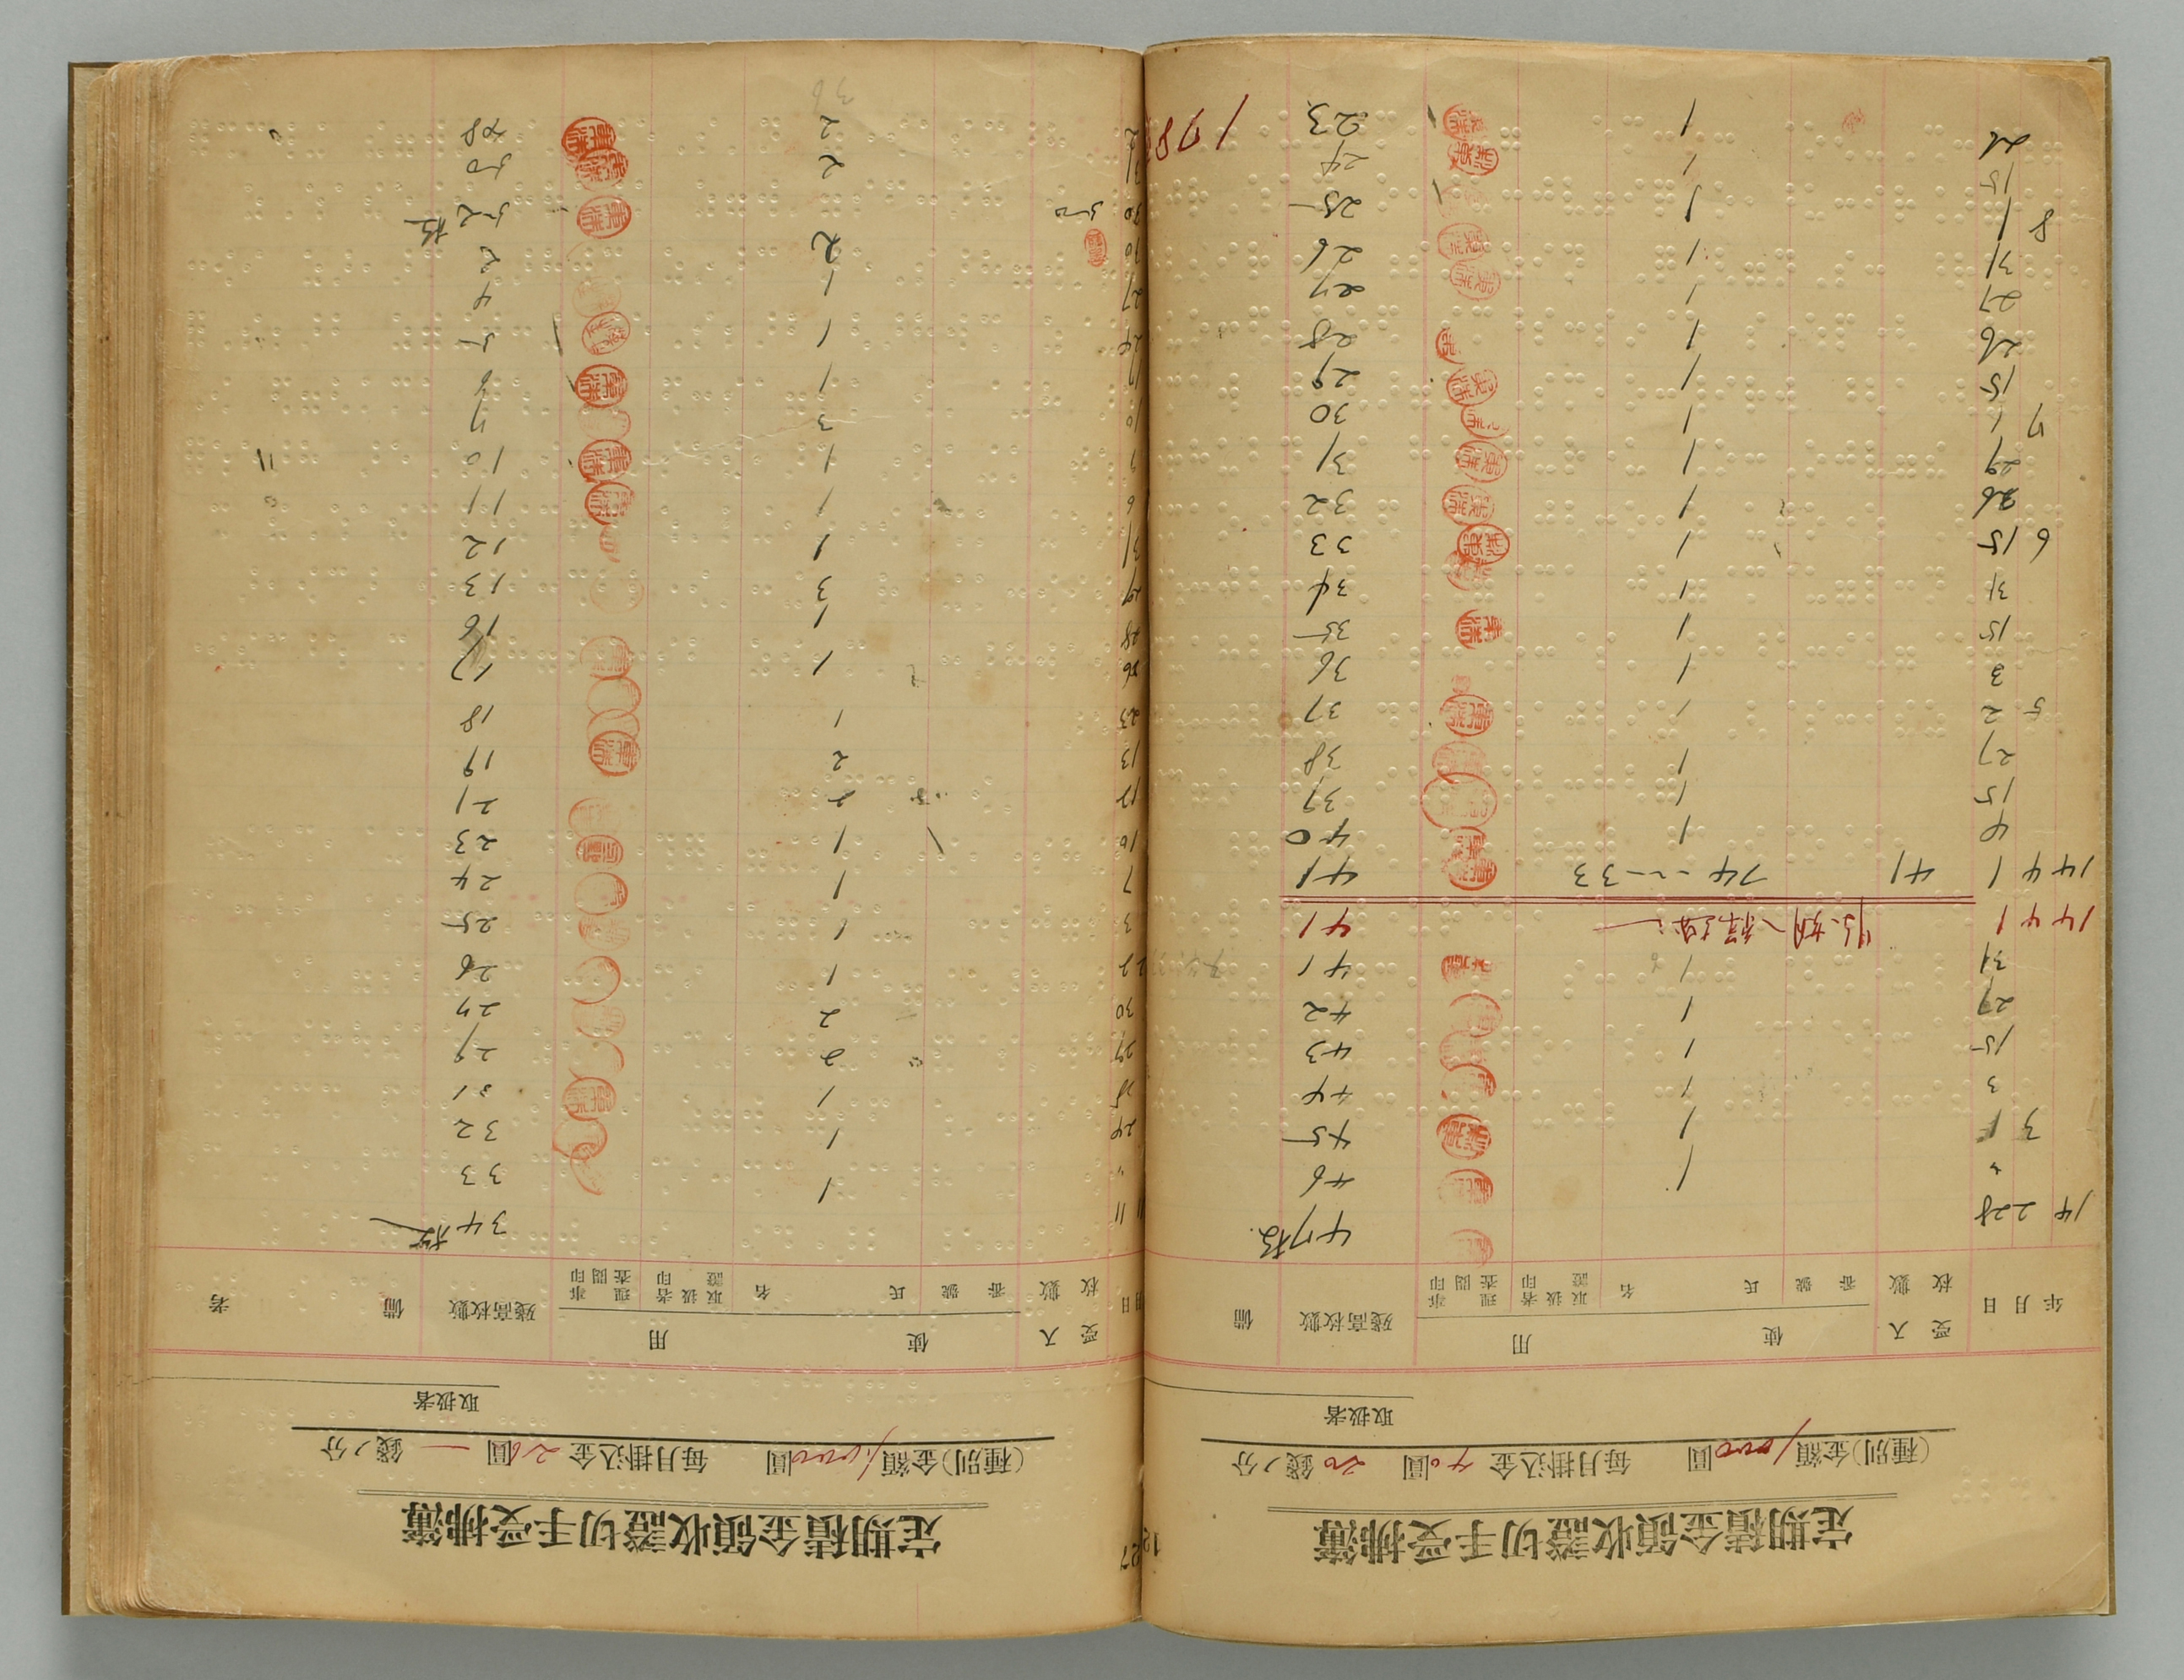 定期積金領收證切手受拂簿
(種別)金額 1,000圓 每月掛込金 40圓 20錢ノ分
取扱者
年月日 受入 使用 殘高枚數 備
枚數 番號 氏名 取扱者證印 理事査閲印
14 2 28 47枚
〃 1 46
3 1 1 45
3 1 44
15 1 43
27 1 42
31 1 41
14 4 1 41
14 4 1 41 74--33 41
4 1 40
15 1 39
27 1 38
5 2 1 37
3 1 36
15 1 35
31 1 34
6 15 1 33
26 1 32
29 1 31
7 1 1 30
15 1 29
26 1 28
27 1 27
31 1 26
8 1 1 25
15 1 24
22 1 23
定期積金領收證切手受拂簿
(種別)金額 1,000圓 每月掛込金 26圓 一錢ノ分
取扱者
月日 受入 使用 殘高枚數 備考
枚數 番號 氏名 取扱者證印 理事査閲印
11 34枚
〃 1 33
24 1 32
25 1 31
27 2 29
30 2 27
1 26
3 1 25
7 1 24
10 1 23
12 2 21
13 2 19
23 1 18
26 1 17
28 1 16
29 3 13
31 1 12
6 1 11
9 1 10
10 3 7
17 1 6
24 1 5
27 1 4
30 2 2
30 50 52枚
31 2 50
2 48